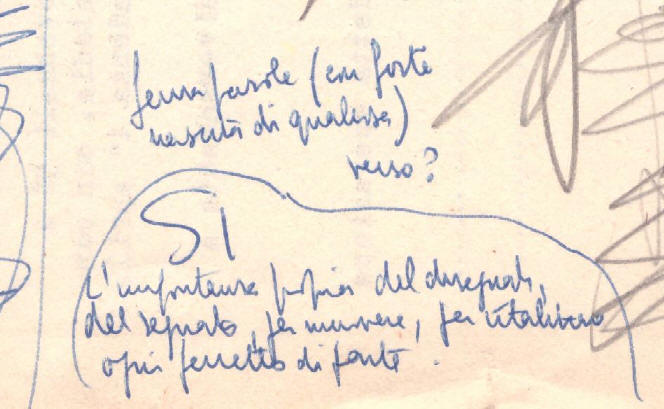 senza parole (con forte
nascita di qualcosa)
verso?
SI
L'importanza propria del disegnato,
del segnato, per muovere, per
ogni pezzetto di parte.